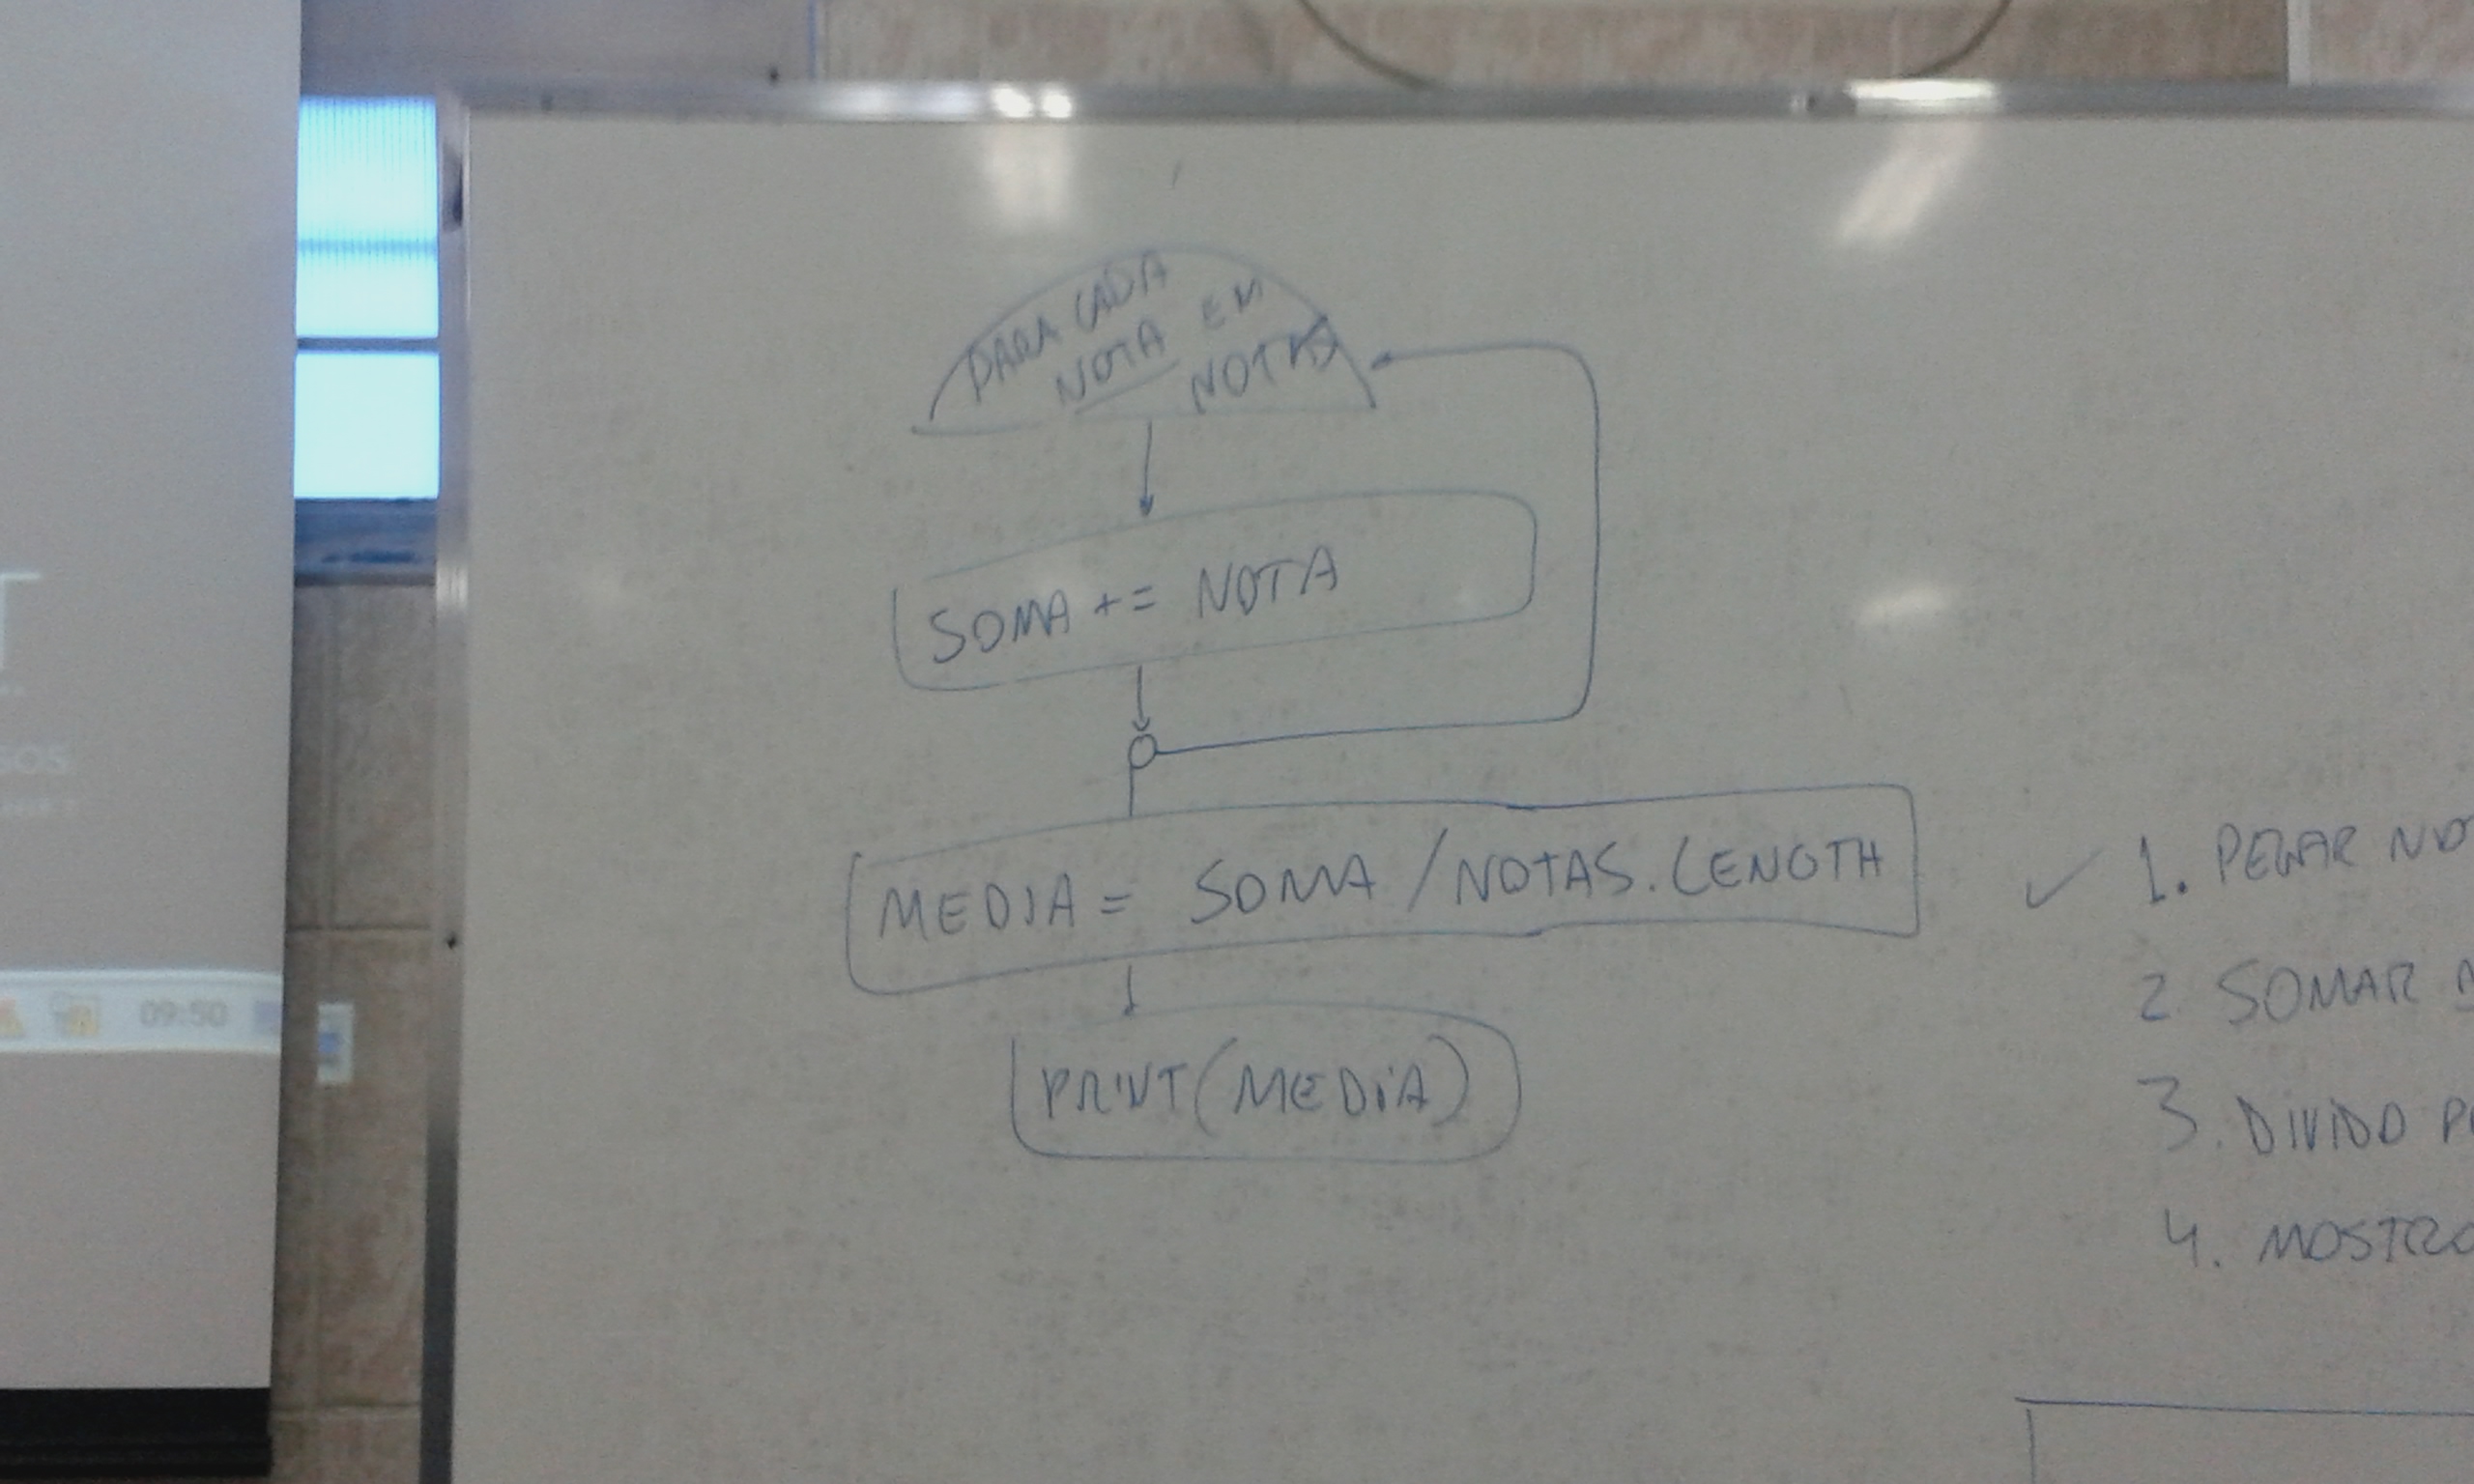 PARA CADA
NOTA EM
NOTAS
SOMA += NOTA
MEDIA = SOMA / NOTAS.LENGTH
PRINT(MEDIA)
1. PEGAR NO
2. SOMAR N
3. DIVIDO P
4. MOSTRO
09:50
SOS